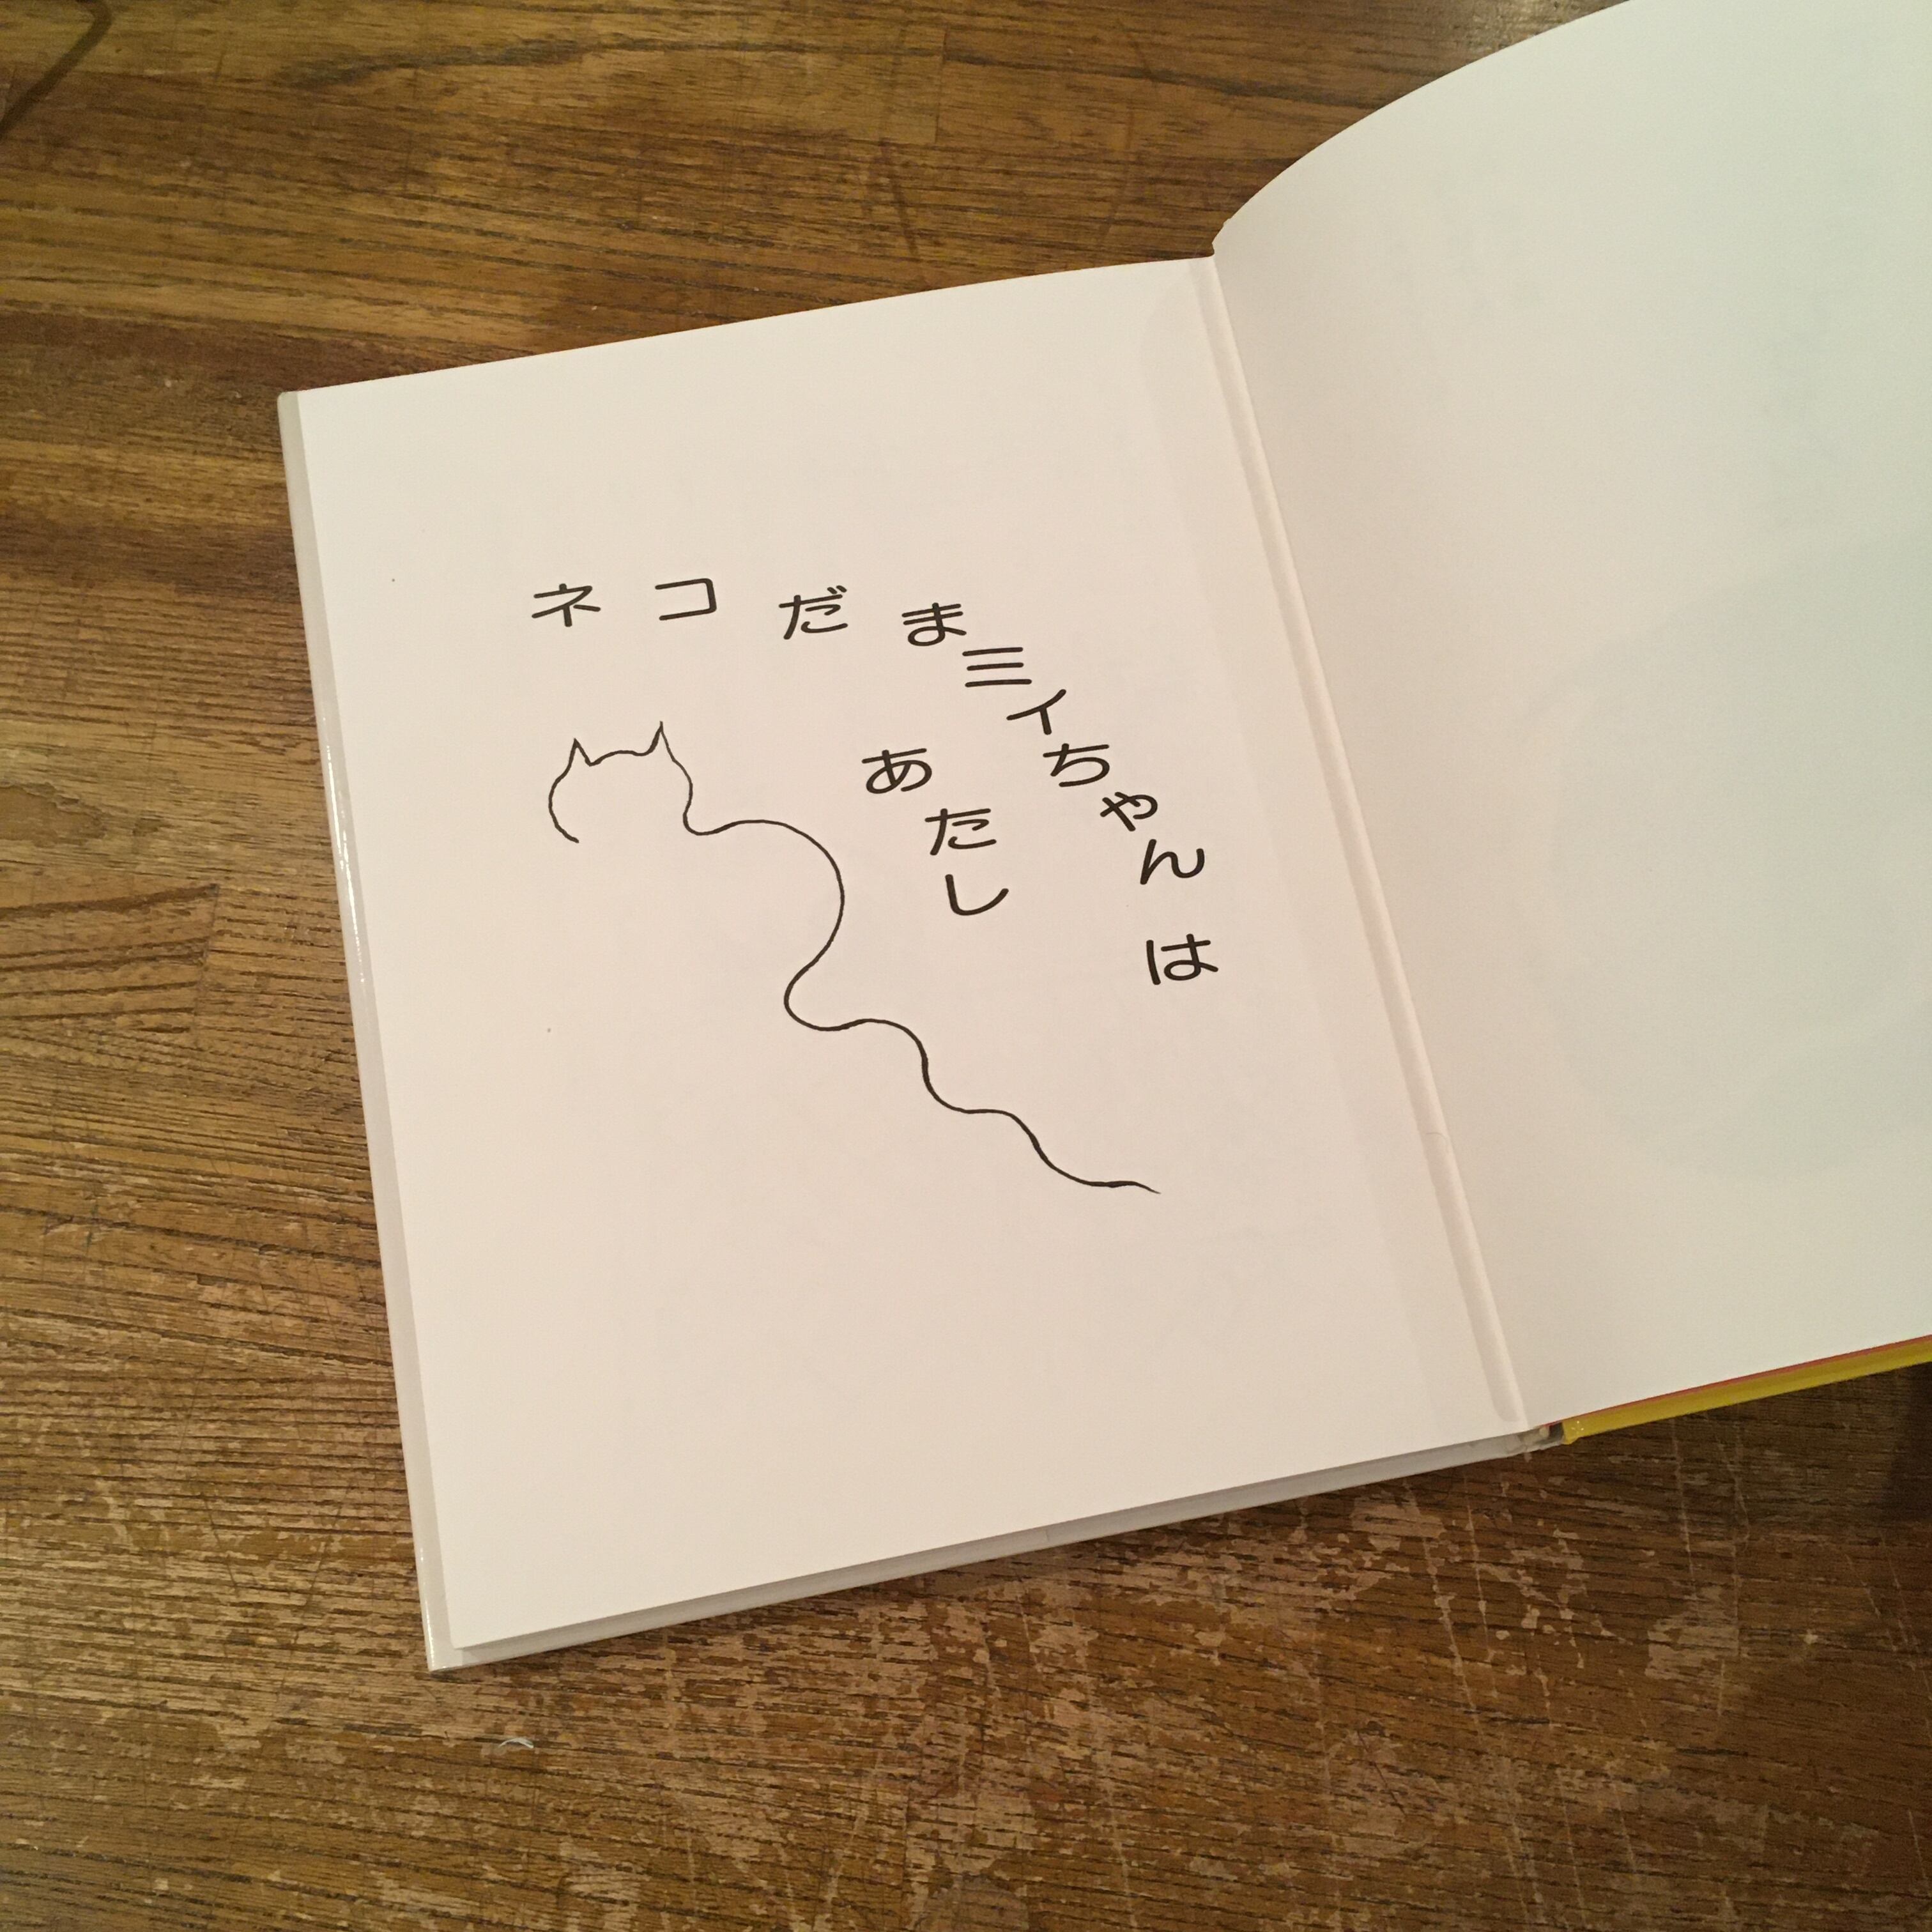 ネコだまミイちゃんは
あたし